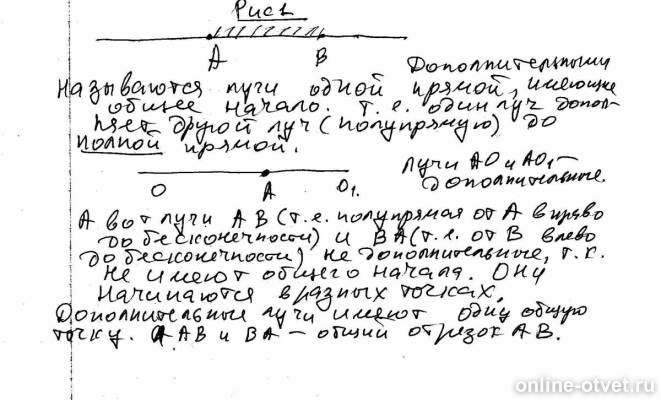 Рис 1
А В
Дополнительными
называются лучи одной прямой, имеющие
общее начало. т.е. один луч допол-
няет другой луч (полупрямую) до
полной прямой.
О А О1.
лучи АО и АО1 –
дополнительные.
А вот лучи АВ (т.е. полупрямая от А вправо
до бесконечности) и ВА (т.е. от В влево
до бесконечности) не дополнительные, т.к.
не имеют общего начала. Они
начинаются в разных точках.
Дополнительные лучи имеют одну общую
точку. А АВ и ВА – общий отрезок АВ.
online-otvet.ru